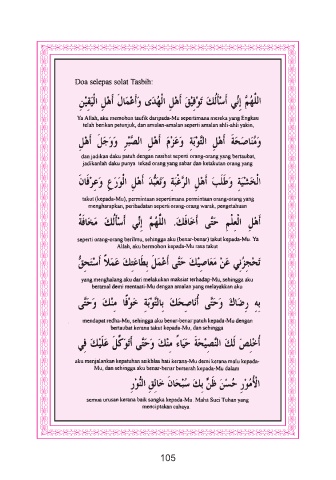 Doa selepas solat Tasbih:
اللَّهُمَّ إِنِّي أَسْأَلُكَ تَوْفِيْقَ أَهْلِ الْهُدَى وَأَعْمَالَ أَهْلِ الْيَقِيْنِ
Ya Allah, aku memohon taufik daripada-Mu sepertimana mereka yang Engkau
telah berikan petunjuk, dan amalan-amalan seperti amalan ahli-ahli yakin,
وَمُنَاصَحَةَ أَهْلِ التَّوْبَةِ وَعَزْمَ أَهْلِ الصَّبْرِ وَوَجَلَ أَهْلِ
dan jadikan daku patuh dengan nasihat seperti orang-orang yang bertaubat,
jadikanlah daku punya tekad orang yang sabar dan ketakutan orang yang
الْخَشْيَةِ وَطَلَبَ أَهْلِ الرَّغْبَةِ وَتَعَبُّدَ أَهْلِ الْوَرَعِ وَعِرْفَانَ
takut (kepada-Mu), permintaan sepertimana permintaan orang-orang yang
mengharapkan, peribadatan seperti orang-orang warak, pengetahuan
أَهْلِ الْعِلْمِ حَتَّى أَخَافَكَ. اللَّهُمَّ إِنِّي أَسْأَلُكَ مَخَافَةً
seperti orang-orang berilmu, sehingga aku (benar-benar) takut kepada-Mu. Ya
Allah, aku bermohon kepada-Mu rasa takut
تَحْجِزُنِي عَنْ مَعَاصِيْكَ حَتَّى أَعْمَلَ بِطَاعَتِكَ عَمَلاً أَسْتَحِقُّ
yang menghalang aku dari melakukan maksiat terhadap-Mu, sehingga aku
beramal demi mentaati-Mu dengan amalan yang melayakkan aku
بِهِ رِضَاكَ وَحَتَّى أُنَاصِحَكَ بِالتَّوْبَةِ خَوْفًا مِنْكَ وَحَتَّى
mendapat redha-Mu, sehingga aku benar-benar patuh kepada-Mu dengan
bertaubat kerana takut kepada-Mu, dan sehingga
أُخْلِصَ لَكَ النَّصِيْحَةَ حَيَاءً مِنْكَ وَحَتَّى أَتَوَكَّلَ عَلَيْكَ فِي
aku menjalankan kepatuhan seikhlas hati kerana-Mu demi kerana malu kepada-
Mu, dan sehingga aku benar-benar berserah kepada-Mu dalam
الْأُمُوْرِ حُسْنَ ظَنٍّ بِكَ سُبْحَانَ خَالِقِ النُّوْرِ
semua urusan kerana baik sangka kepada-Mu. Maha Suci Tuhan yang
menciptakan cahaya.
105